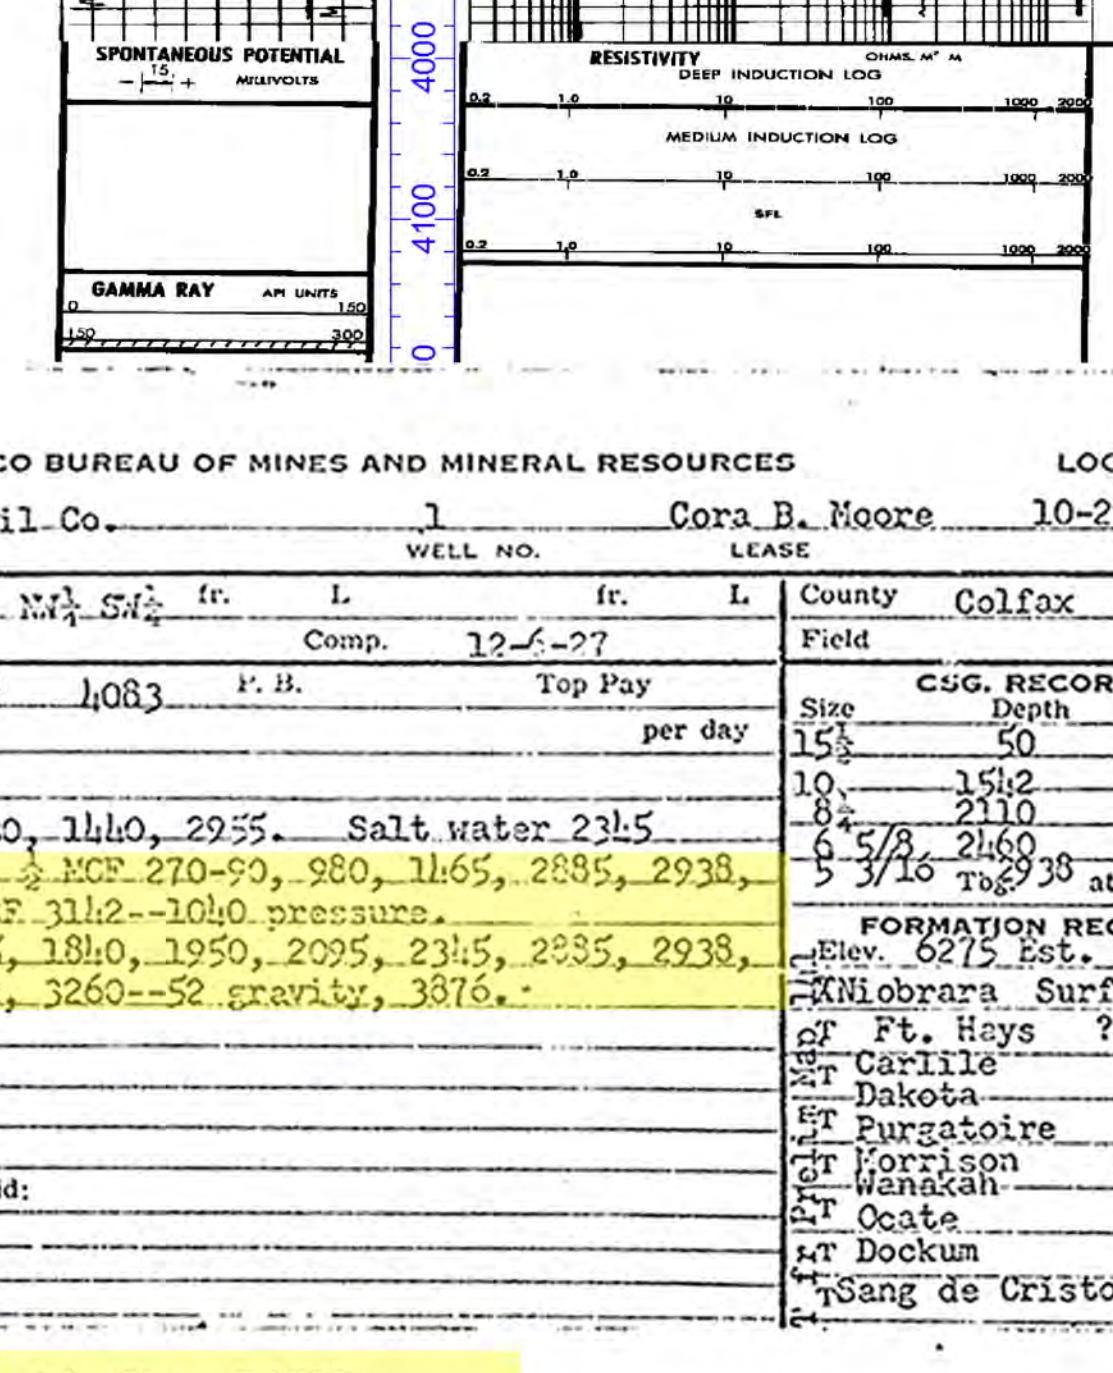 SPONTANEOUS POTENTIAL
- 15 + MILLIVOLTS
GAMMA RAY API UNITS
0 150
150 300
4000
4100
0
RESISTIVITY OHMS. M² M
DEEP INDUCTION LOG
0.2 1.0 10 100 1000 2000
MEDIUM INDUCTION LOG
0.2 1.0 10 100 1000 2000
SFL
0.2 1.0 10 100 1000 2000
CO BUREAU OF MINES AND MINERAL RESOURCES LOC
il Co. 1 Cora B. Moore 10-2
WELL NO. LEASE
NW¼ SW¼ fr. L fr. L
Comp. 12-6-27
4083 P. B. Top Pay
per day
0, 1440, 2955. Salt water 2345
½ MCF 270-90, 980, 1465, 2885, 2938,
F 3142--1040 pressure.
, 1840, 1950, 2095, 2345, 2885, 2938,
, 3260--52 gravity, 3876.
id:
County Colfax
Field
CSG. RECOR
Size Depth
15½ 50
10 1542
8¼ 2110
6 5/8 2460
5 3/16 Tbg. 938 at
FORMATION REC
Elev. 6275 Est.
Niobrara Surf
T Ft. Hays ?
T Carlile
Dakota
T Purgatoire
T Morrison
Wanakah
T Ocate
T Dockum
T Sang de Cristo